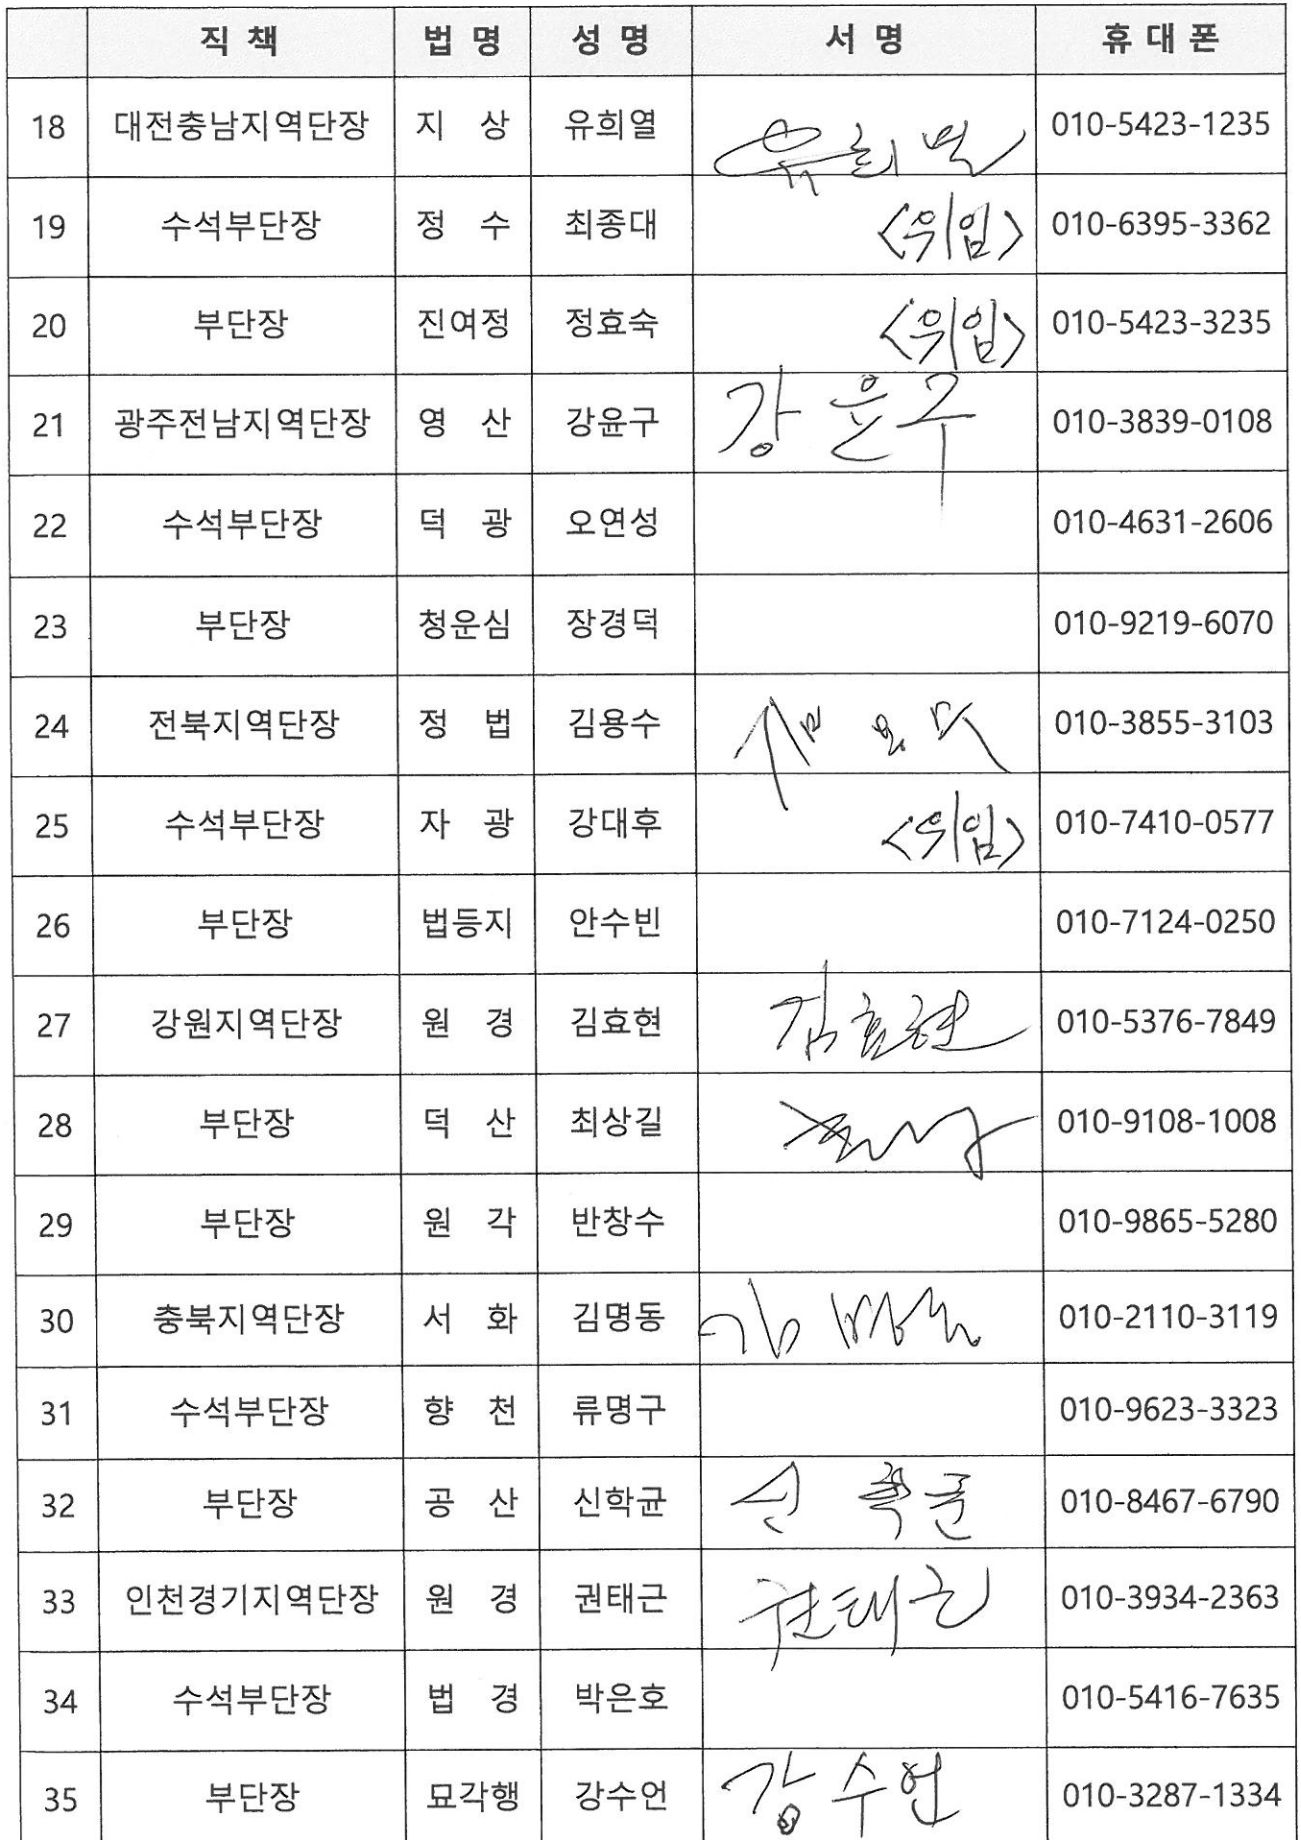 직 책 법 명 성 명 서 명 휴 대 폰
18 대전충남지역단장 지 상 유희열 유희열 010-5423-1235
19 수석부단장 정 수 최종대 <위임> 010-6395-3362
20 부단장 진여정 정효숙 <위임> 010-5423-3235
21 광주전남지역단장 영 산 강윤구 강윤구 010-3839-0108
22 수석부단장 덕 광 오연성 010-4631-2606
23 부단장 청운심 장경덕 010-9219-6070
24 전북지역단장 정 법 김용수 010-3855-3103
25 수석부단장 자 광 강대후 <위임> 010-7410-0577
26 부단장 법등지 안수빈 010-7124-0250
27 강원지역단장 원 경 김효현 김효현 010-5376-7849
28 부단장 덕 산 최상길 010-9108-1008
29 부단장 원 각 반창수 010-9865-5280
30 충북지역단장 서 화 김명동 김명동 010-2110-3119
31 수석부단장 향 천 류명구 010-9623-3323
32 부단장 공 산 신학균 신학균 010-8467-6790
33 인천경기지역단장 원 경 권태근 권태근 010-3934-2363
34 수석부단장 법 경 박은호 010-5416-7635
35 부단장 묘각행 강수언 강수언 010-3287-1334